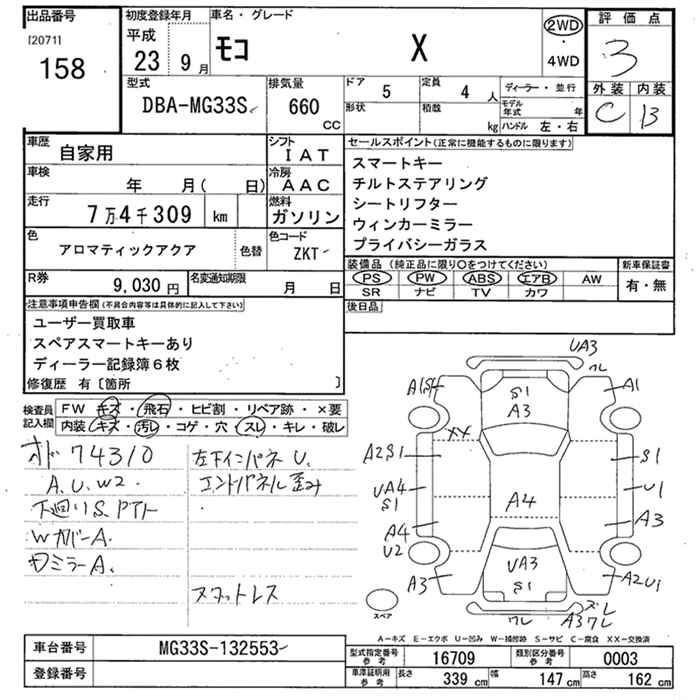 出品番号 初度登録年月 車名・グレード 評価点
[2071] 平成 2WD
158 23 9月 モコ X ・ 3
4WD
型式 排気量 ドア 5 定員 4人 ディーラー・並行 外装 内装
DBA-MG33S 660 cc 形状 積載 kg モデル年式 年 C B
ハンドル 左・右
車歴 自家用 シフト IAT セールスポイント(正常に機能するものに限ります)
車検 年 月( 日) 冷房 AAC スマートキー
走行 7万4千309 km 燃料 ガソリン チルトステアリング
シートリフター
色 アロマティックアクア 色替 色コード ZKT ウィンカーミラー
プライバシーガラス
R券 9,030円 名変通知期限 月 日 装備品(純正品に限り○をつけてください) 新車保証書
PS PW ABS エアB AW 有・無
SR ナビ TV カワ
注意事項申告欄(不具合内容等は具体的に記入して下さい) 後日品
ユーザー買取車
スペアスマートキーあり
ディーラー記録簿6枚
修復歴 有〔箇所 〕
検査員記入欄 FW キズ・飛石・ヒビ割・リペア跡・×要
内装・キズ・汚レ・コゲ・穴・スレ・キレ・破レ
74310 左下インパネU.
A.U.W2 エンドパネル歪み
下廻りS.
WカバーA.
ミラーA.
スマットレス
UA3
ワレ
A1S1 S1 A1
A3
XX
A2S1 S1
UA4 U1
S1 A4
A4 A3
U2
UA3
A3 S1 A2U1
ワレ ズレ
A3ワレ
スペア
A-キズ E-エクボ U-凹み W-補修跡 S-サビ C-腐食 XX-交換済
車台番号 MG33S-132553
登録番号
型式指定番号 参考 16709 類別区分番号 参考 0003
車庫証明用 参考 長さ 339 cm 幅 147 cm 高さ 162 cm